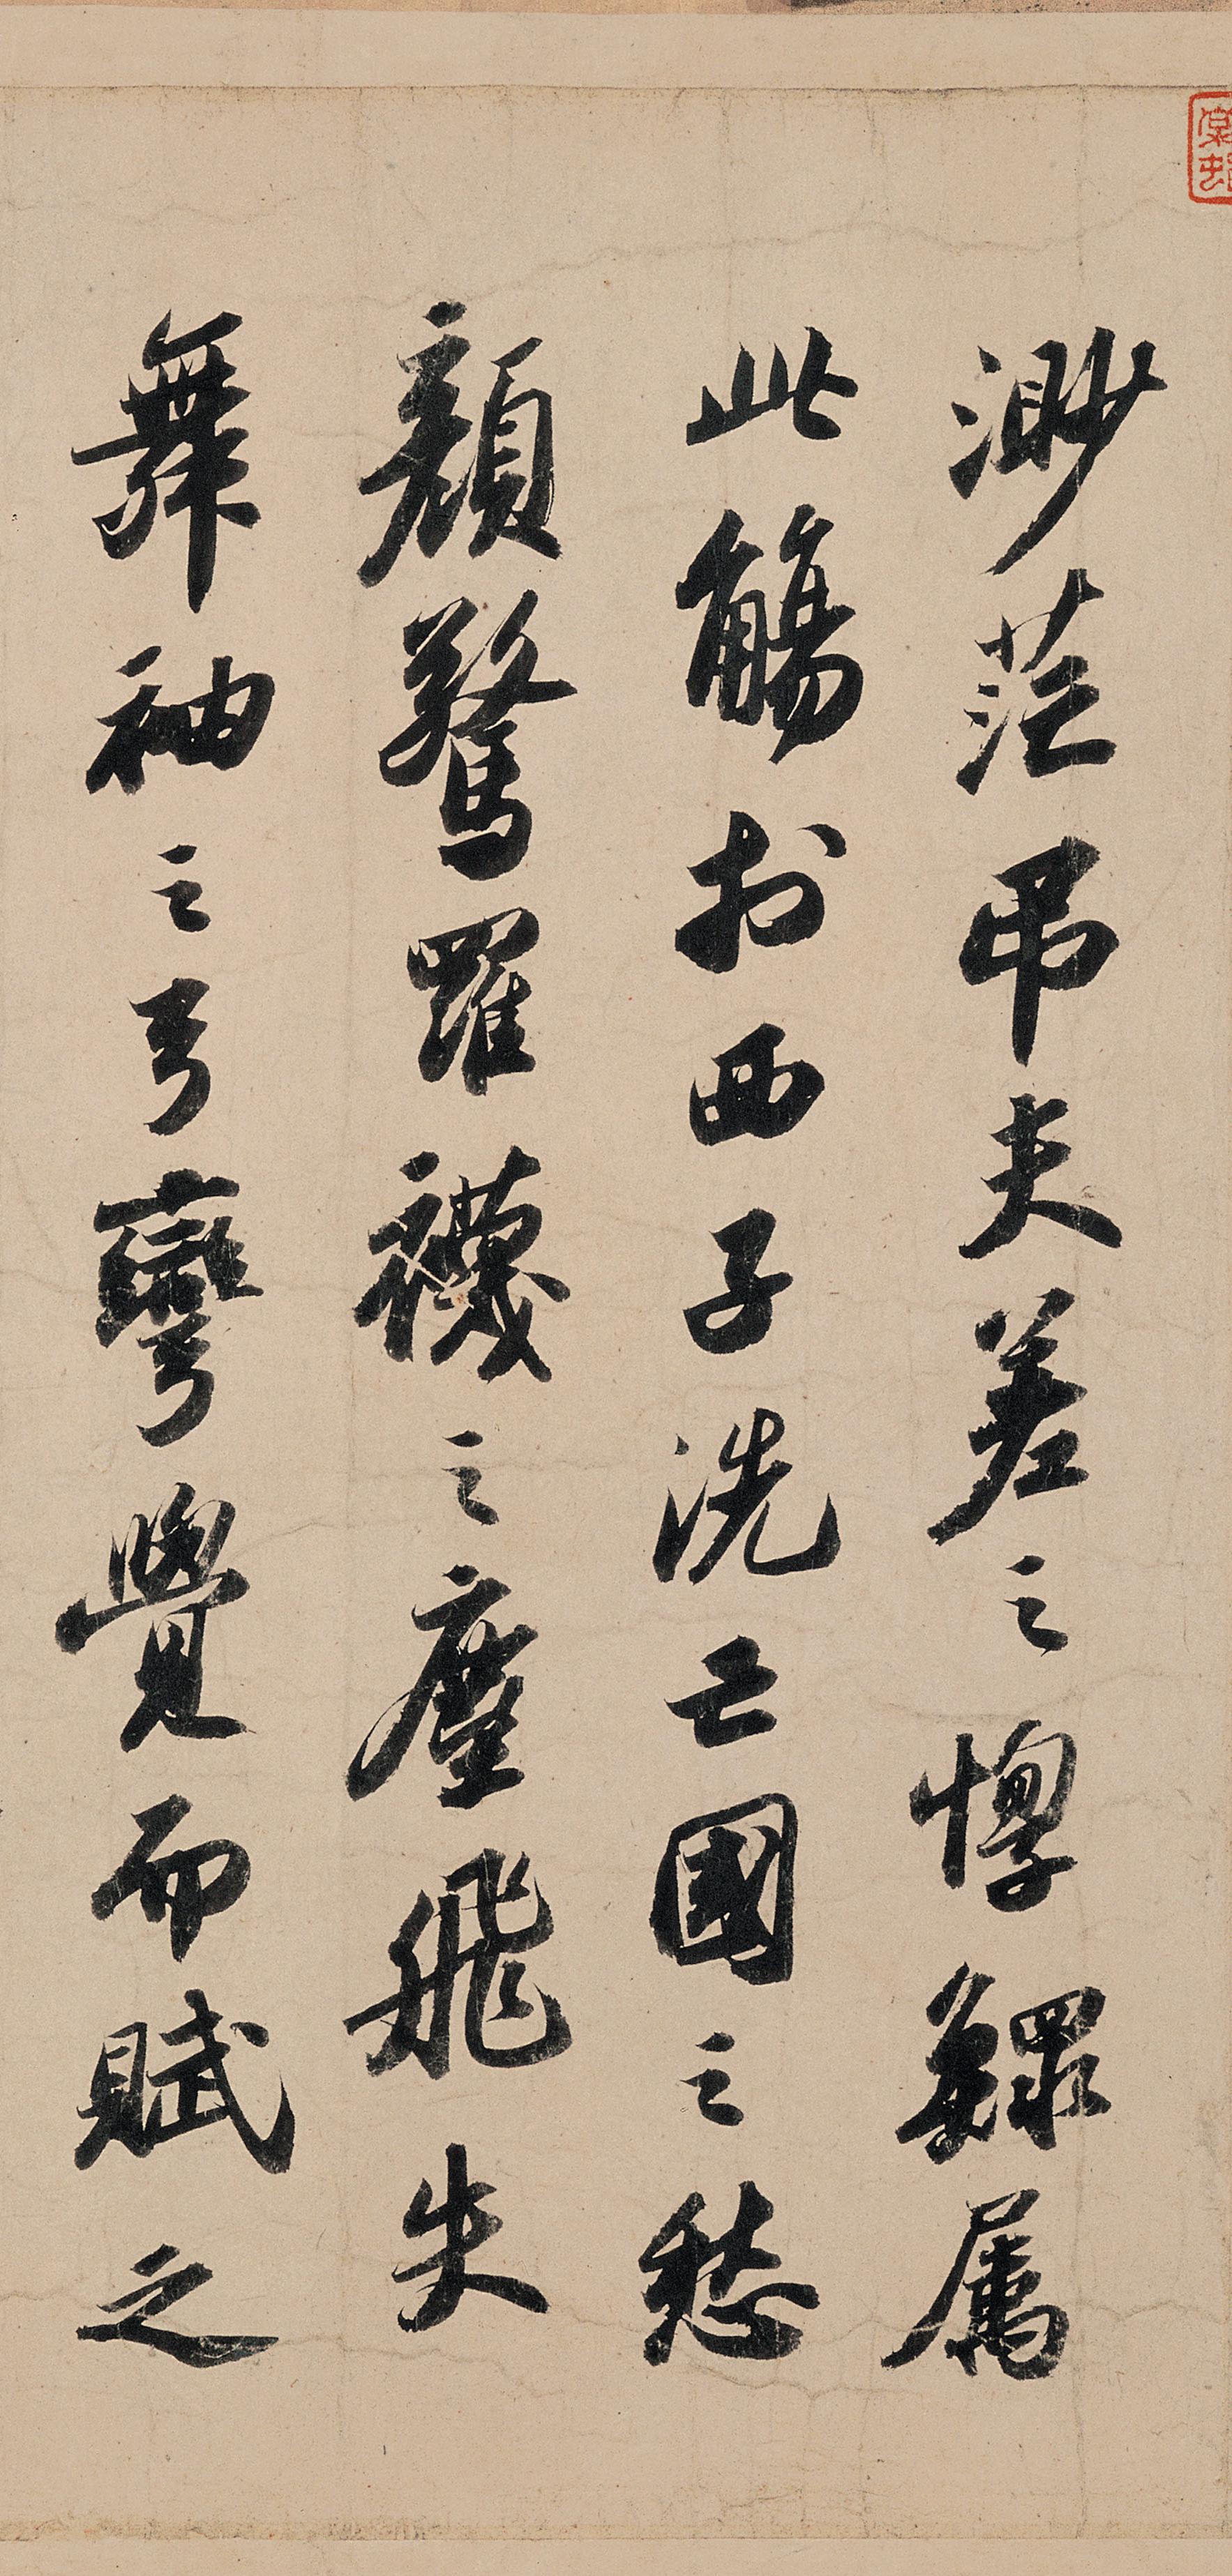 渺茫吊夫差之惸鰥属
此觴於西子洗亡國之愁
顔驚羅襪之塵飛失
舞袖之弓彎覺而賦之